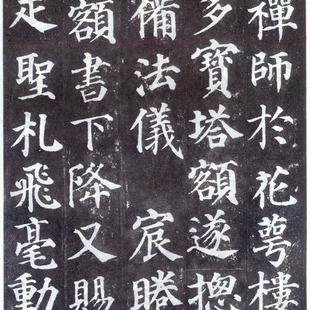 禪師於花萼樓
多寶塔額遂摠
備法儀 宸睠
額書下降又賜
疋聖札飛毫動